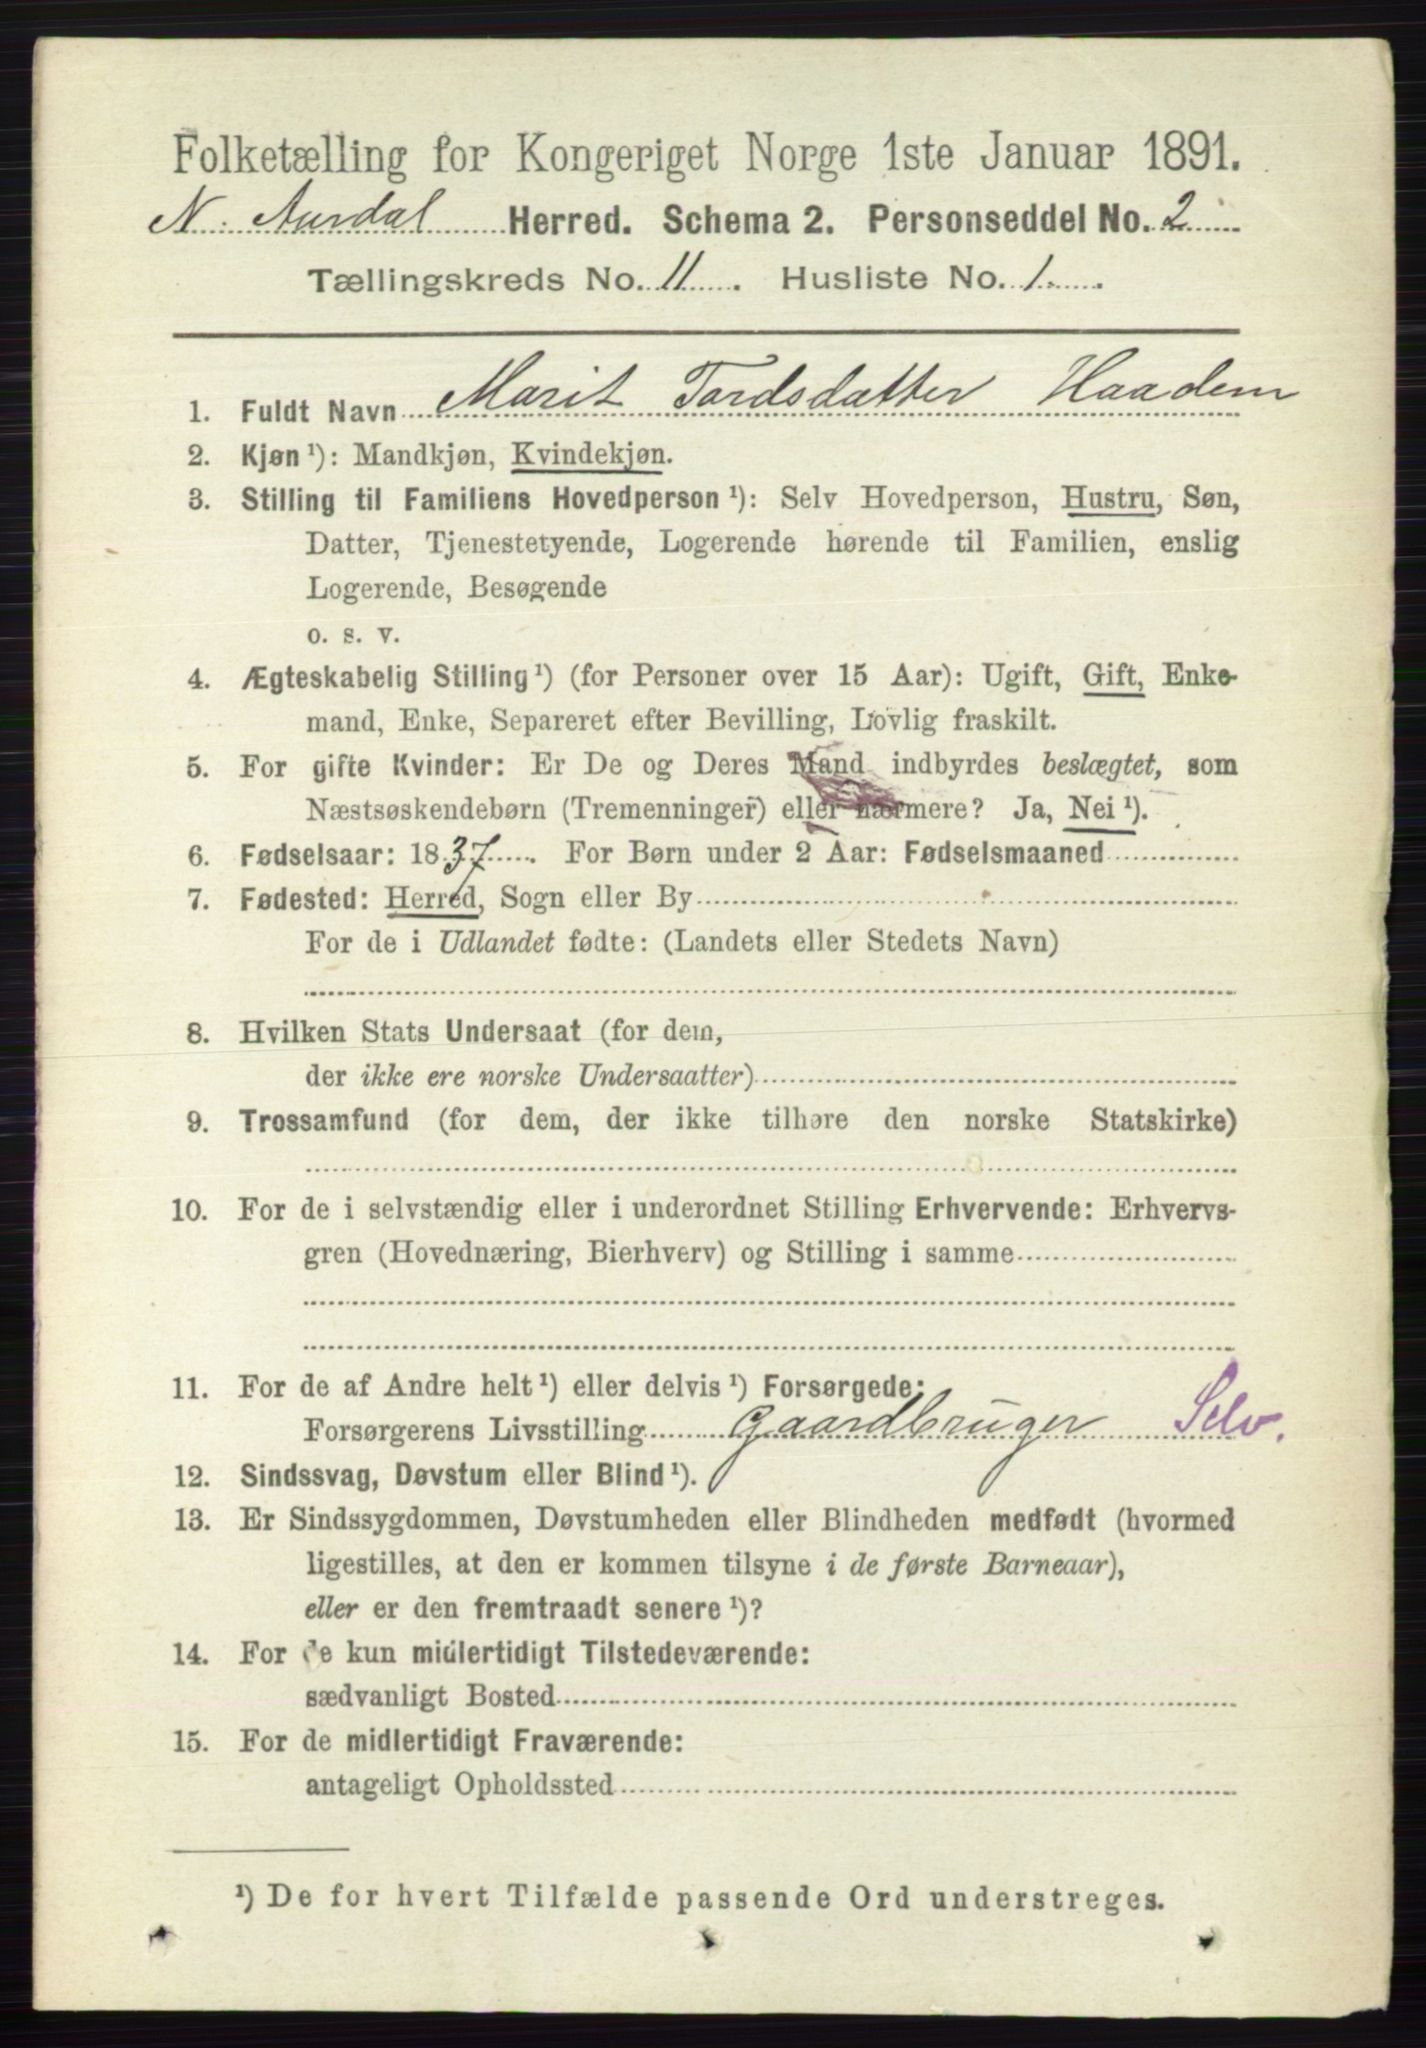 Folketælling for Kongeriget Norge 1ste Januar 1891.
N. Aurdal Herred. Schema 2. Personseddel No. 2
Tællingskreds No. 11. Husliste No. 1.
1. Fuldt Navn Marit Tordsdatter Haadem
2. Kjøn ¹): Mandkjøn, Kvindekjøn.
3. Stilling til Familiens Hovedperson ¹): Selv Hovedperson, Hustru, Søn,
Datter, Tjenestetyende, Logerende hørende til Familien, enslig
Logerende, Besøgende
o. s. v.
4. Ægteskabelig Stilling ¹) (for Personer over 15 Aar): Ugift, Gift, Enke-
mand, Enke, Separeret efter Bevilling, Lovlig fraskilt.
5. For gifte Kvinder: Er De og Deres Mand indbyrdes beslægtet, som
Næstsøskendebørn (Tremenninger) eller nærmere? Ja, Nei ¹).
6. Fødselsaar: 1837. For Børn under 2 Aar: Fødselsmaaned
7. Fødested: Herred, Sogn eller By
For de i Udlandet fødte: (Landets eller Stedets Navn)
8. Hvilken Stats Undersaat (for dem,
der ikke ere norske Undersaatter)
9. Trossamfund (for dem, der ikke tilhøre den norske Statskirke)
10. For de i selvstændig eller i underordnet Stilling Erhvervende: Erhvervs-
gren (Hovednæring, Bierhverv) og Stilling i samme
11. For de af Andre helt ¹) eller delvis ¹) Forsørgede:
Forsørgerens Livsstilling Gaardbruger Selv.
12. Sindssvag, Døvstum eller Blind ¹).
13. Er Sindssygdommen, Døvstumheden eller Blindheden medfødt (hvormed
ligestilles, at den er kommen tilsyne i de første Barneaar),
eller er den fremtraadt senere ¹)?
14. For de kun midlertidigt Tilstedeværende:
sædvanligt Bosted
15. For de midlertidigt Fraværende:
antageligt Opholdssted
¹) De for hvert Tilfælde passende Ord understreges.